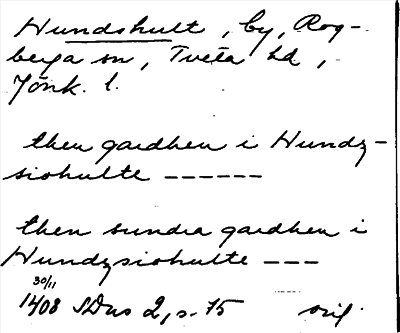 Hundshult, by, Rog-
berga sn, Tveta hd,
Jönk. l.
then gardhen i Hundz-
siohulte ------
then sundra gardhen i
Hundzsiohulte ---
30/11
1408 SDns 2, s. 75 orig.